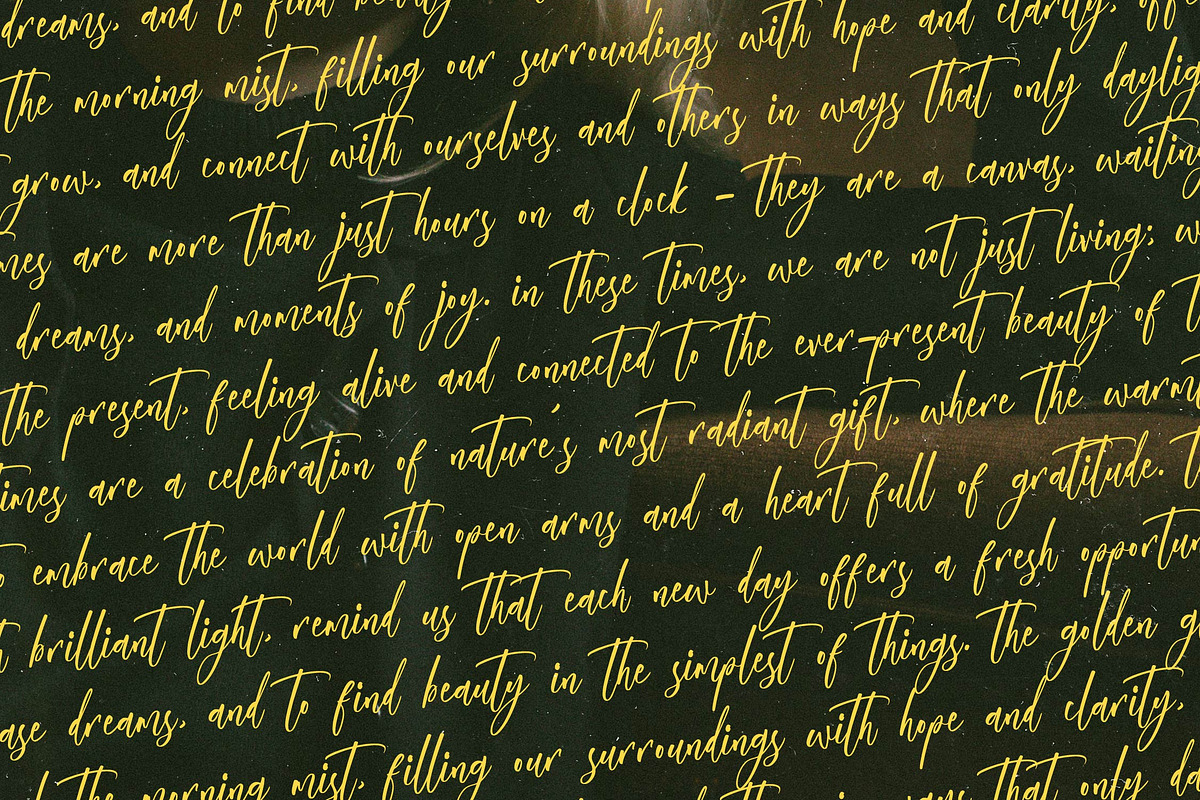 dreams, and to find beauty
the morning mist, filling our surroundings with hope and clarity,
grow, and connect with ourselves and others in ways that only
are more than just hours on a clock - they are a canvas, waiting
dreams, and moments of joy. in these times, we are not just living;
the present, feeling alive and connected to the ever-present beauty of
are a celebration of nature's most radiant gift, where the
embrace the world with open arms and a heart full of gratitude.
brilliant light, remind us that each new day offers a fresh
dreams, and to find beauty in the simplest of things. the golden
the morning mist, filling our surroundings with hope and clarity,
that only